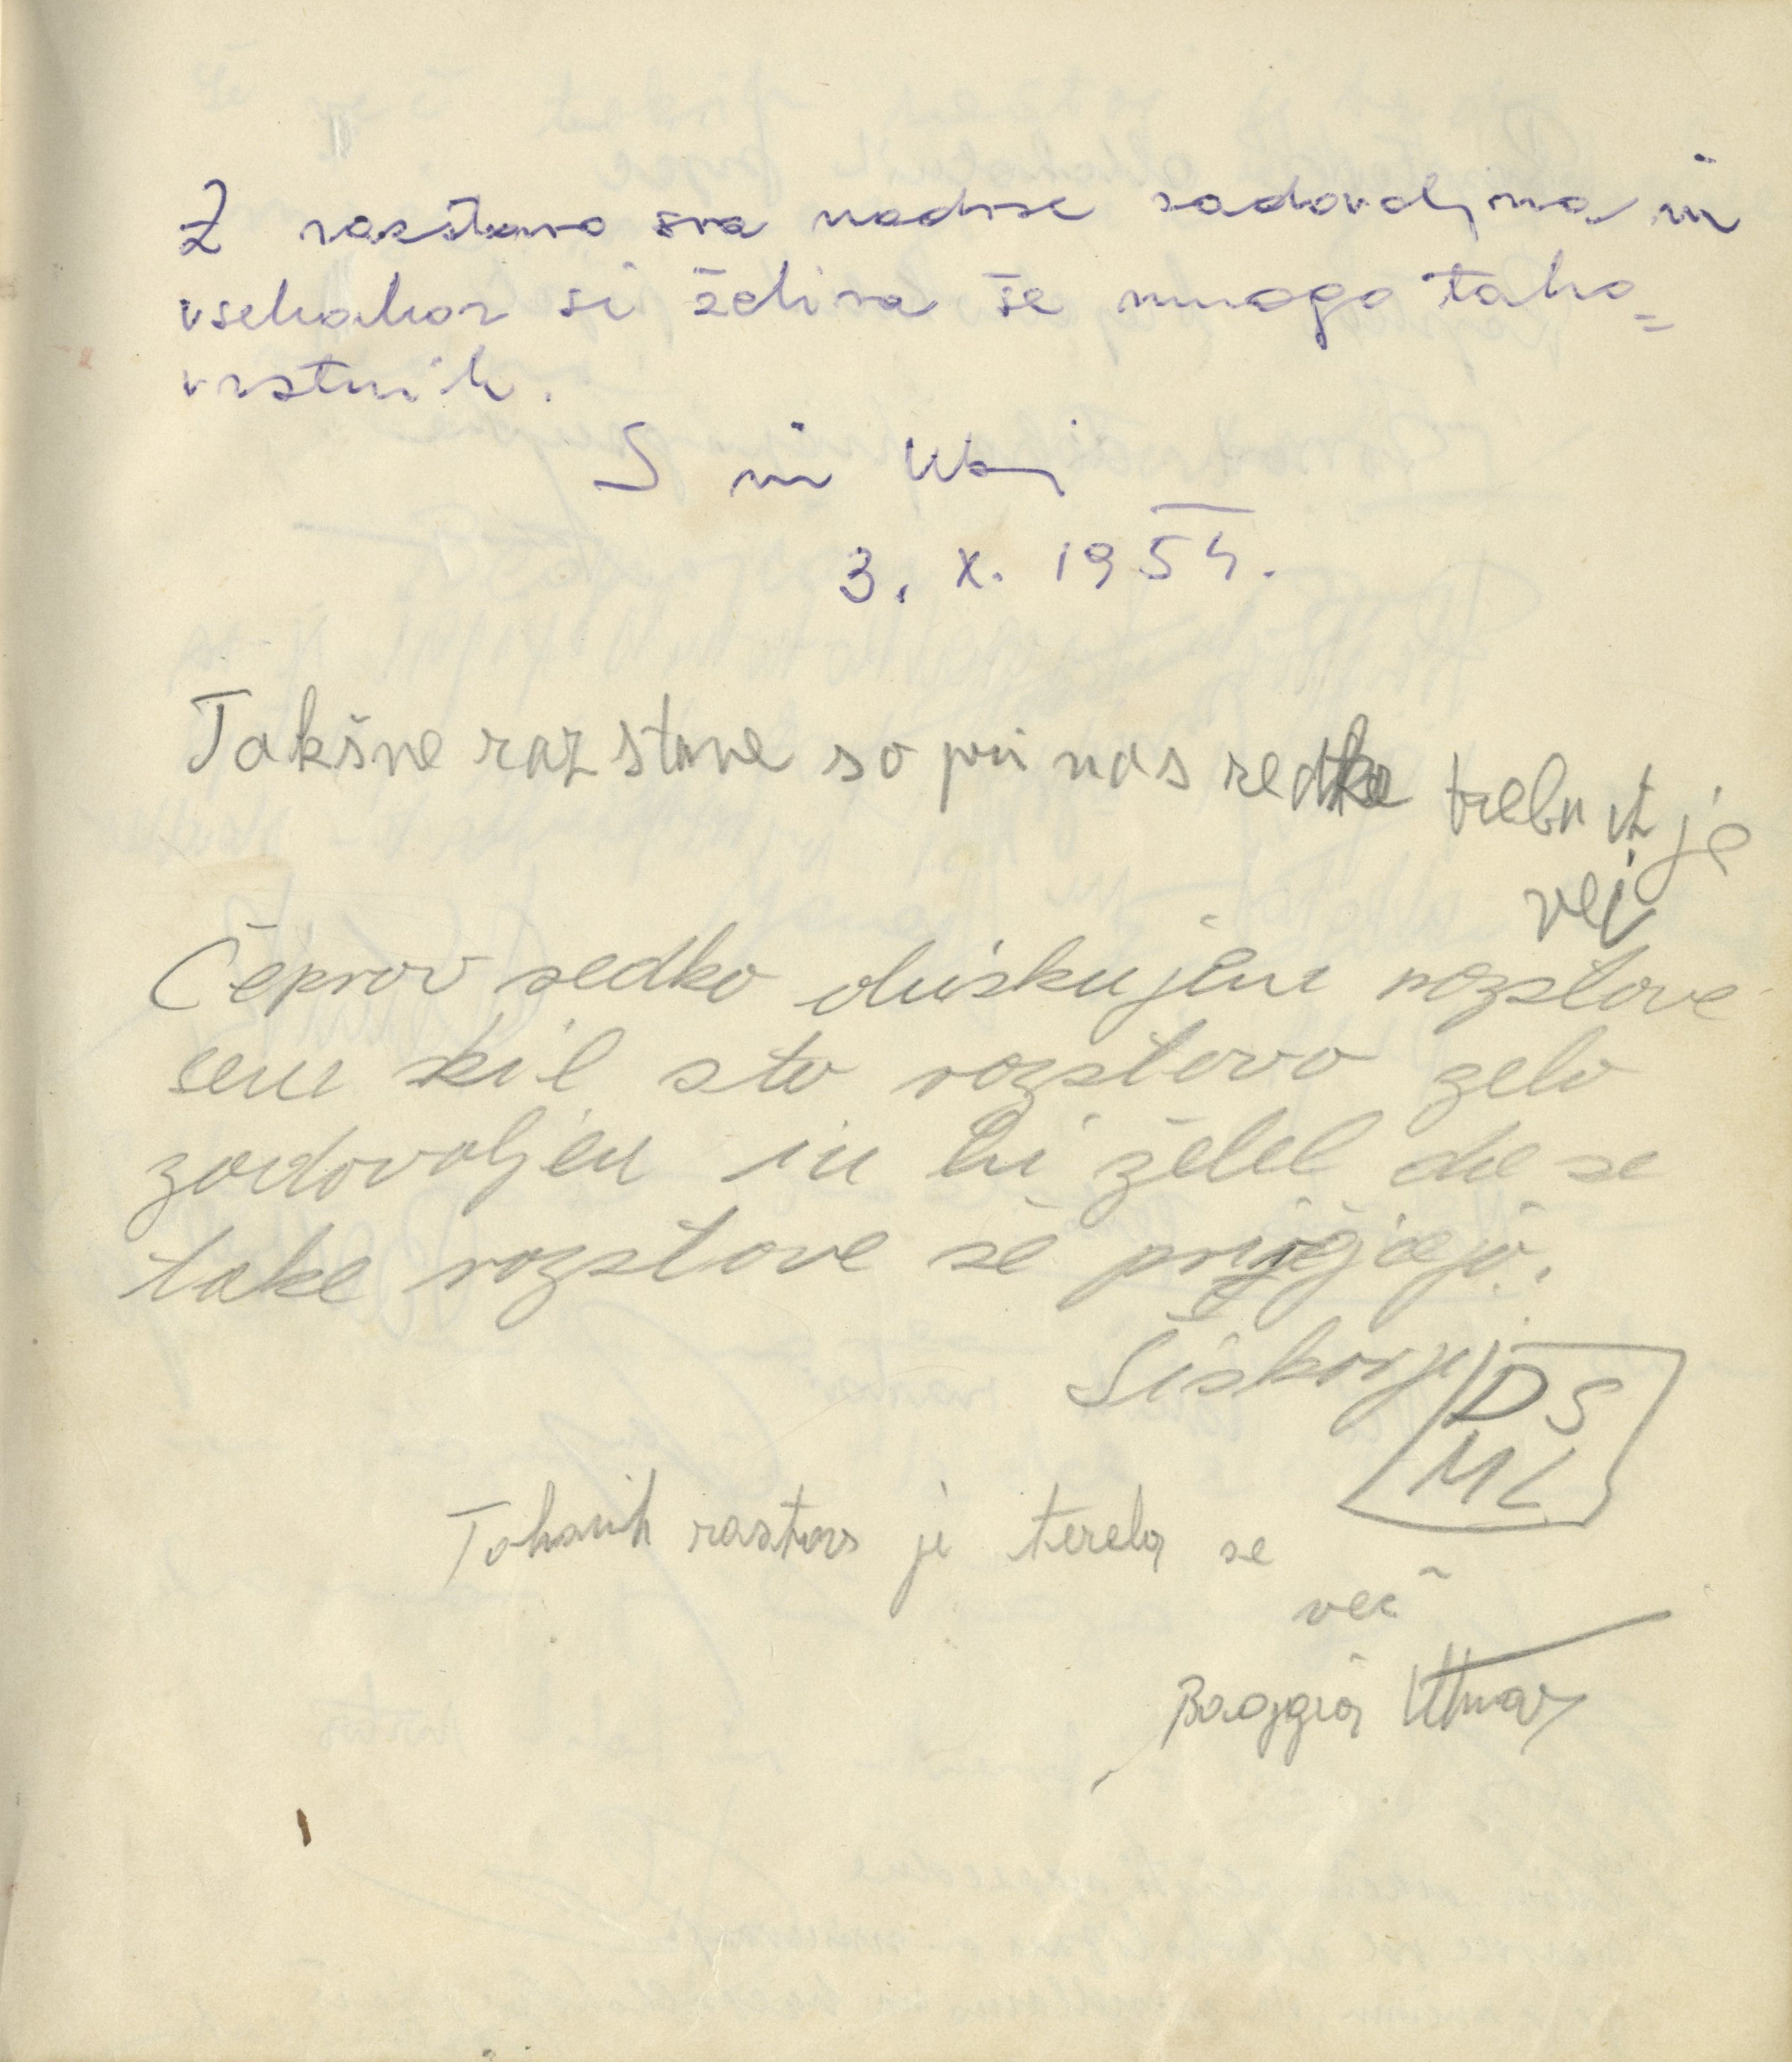 Z razstavo sva nadvse zadovoljna in
vsekakor si želiva še mnogo tako=
vrstnih.
S in
3. X. 1954.
Takšne razstave so pri nas redke treba jt je
več
Čeprav redko obiskujem razstave
sem bil s to razstavo zelo
zadovoljen in bi želel da se
take razstave še prirejajo.
DS
ML
Takšnih rastav je tereba se
več